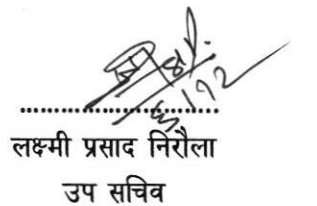 लक्ष्मी प्रसाद निरौला
उप सचिव